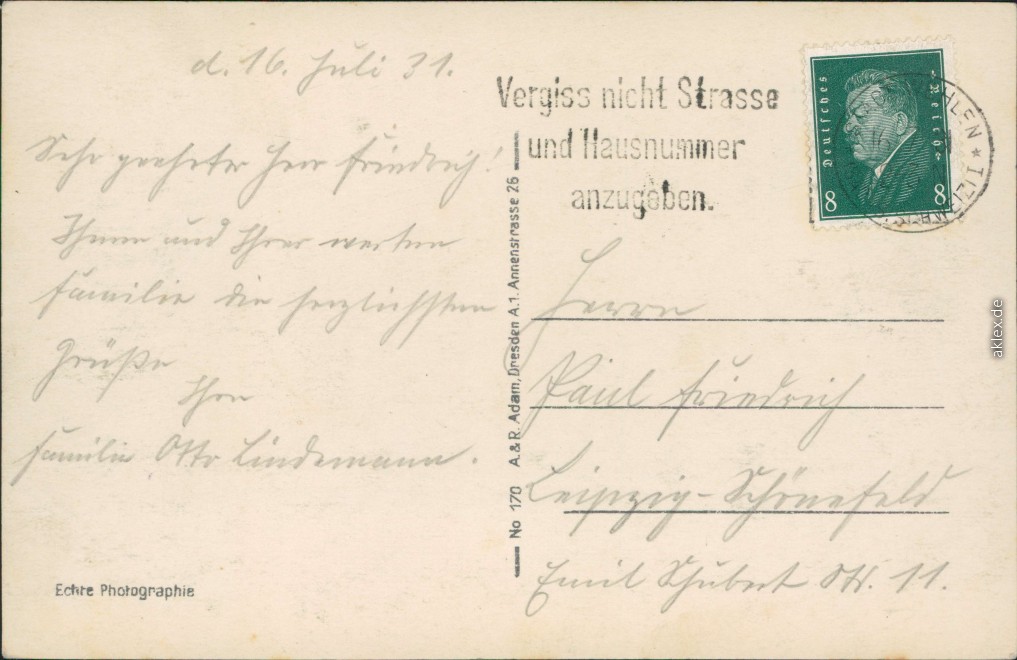 d. 16. Juli 31.
Sehr geehrter Herr Friedrich!
Ihnen und Ihrer werten
Familie die herzlichsten
Grüße
Ihre
Familie Otto Lindemann.
Echte Photographie
No 170 A. & R. Adam, Dresden A.1. Annenstrasse 26
Vergiss nicht Strasse
und Hausnummer
anzugeben.
Deutsches Reich
8 8
Herrn
Paul Friedrich
Leipzig-Schönefeld
Emil Schubert Str. 11.
aklex.de